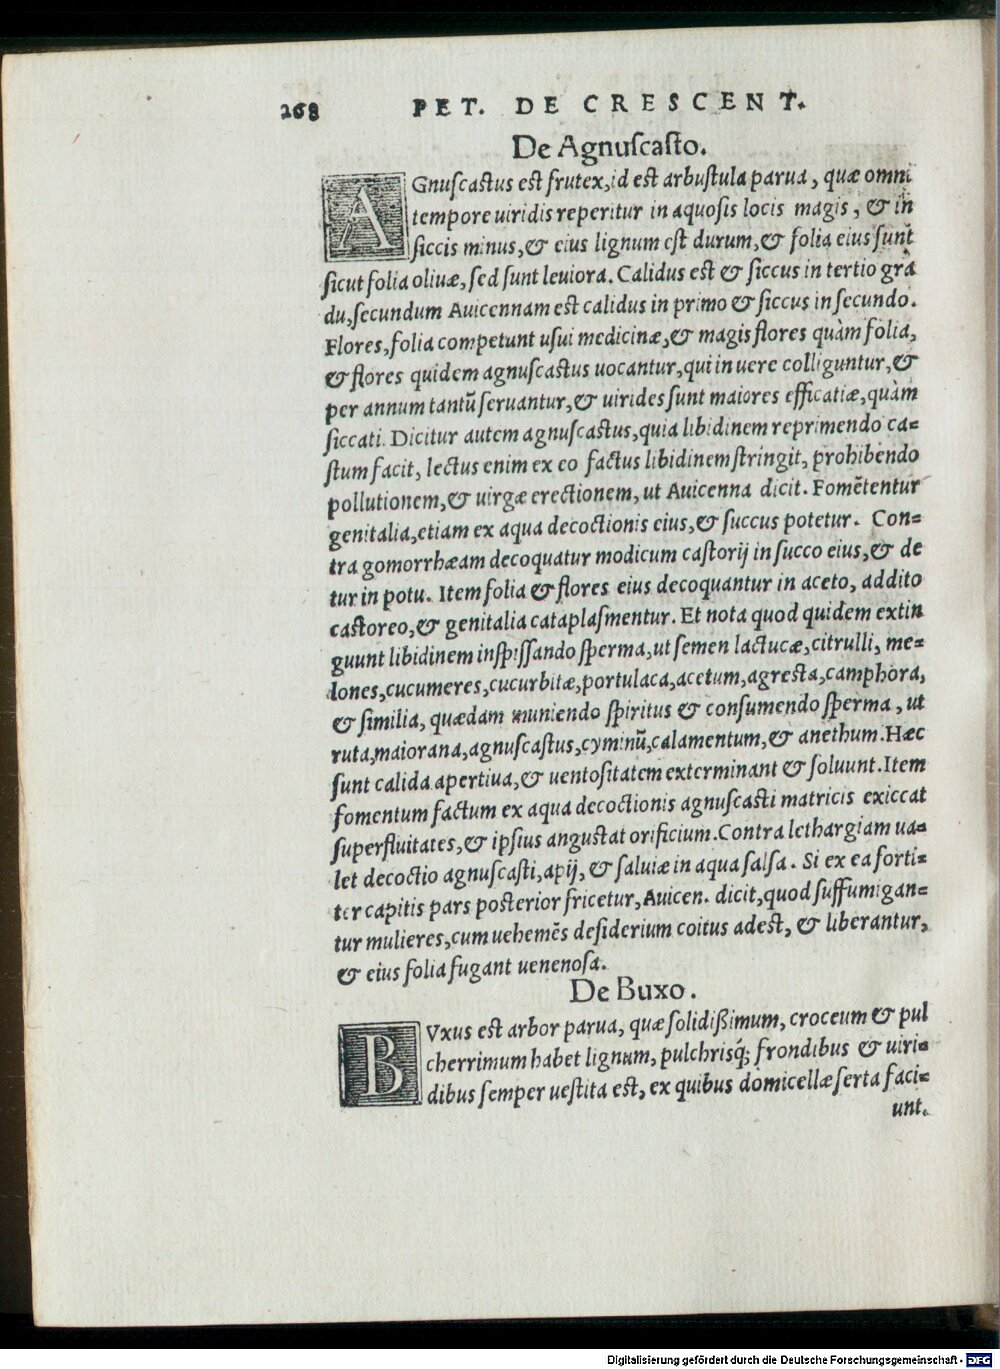 268 PET. DE CRESCENT.
De Agnuſcaſto.
AGnuſcastus est frutex, id est arbuſtula parua, quæ omni
tempore uiridis reperitur in aquoſis locis magis, & in
ſiccis minus, & eius lignum eſt durum, & folia eius ſunt
ſicut folia oliuæ, ſed ſunt leuiora. Calidus est & ſiccus in tertio gra
du, ſecundum Auicennam est calidus in primo & ſiccus in ſecundo.
Flores, folia competunt uſui medicinæ, & magis flores quàm folia,
& flores quidem agnuſcaſtus uocantur, qui in uere colliguntur, &
per annum tantū ſeruantur, & uirides ſunt maiores efficatiæ, quàm
ſiccati. Dicitur autem agnuſcaſtus, quia libidinem reprimendo ca=
ſtum facit, lectus enim ex eo factus libidinem ſtringit, prohibendo
pollutionem, & uirgæ erectionem, ut Auicenna dicit. Fomētentur
genitalia, etiam ex aqua decoctionis eius, & ſuccus potetur. Con=
tra gomorrhæam decoquatur modicum caſtorij in ſucco eius, & de
tur in potu. Item folia & flores eius decoquantur in aceto, addito
caſtoreo, & genitalia cataplaſmentur. Et nota quod quidem extin
guunt libidinem inſpiſſando ſperma, ut ſemen lactucæ, citrulli, me=
lones, cucumeres, cucurbitæ, portulaca, acetum, agreſta, camphora,
& ſimilia, quædam muniendo ſpiritus & conſumendo ſperma, ut
ruta, maiorana, agnuſcaſtus, cyminū, calamentum, & anethum. Hæc
ſunt calida apertiua, & uentoſitatem exterminant & ſoluunt. Item
fomentum factum ex aqua decoctionis agnuſcaſti matricis exiccat
ſuperfluitates, & ipſius anguſtat orificium. Contra lethargiam ua=
let decoctio agnuſcaſti, apij, & ſaluiæ in aqua ſalſa. Si ex ea forti=
ter capitis pars poſterior fricetur, Auicen. dicit, quod ſuffumigan=
tur mulieres, cum uehemēs deſiderium coitus adest, & liberantur,
& eius folia fugant uenenoſa.
De Buxo.
BVxus est arbor parua, quæ ſolidißimum, croceum & pul
cherrimum habet lignum, pulchrisq́; frondibus & uiri=
dibus ſemper ueſtita est, ex quibus domicellæ ſerta faci=
unt.
Digitalisierung gefördert durch die Deutsche Forschungsgemeinschaft - DFG